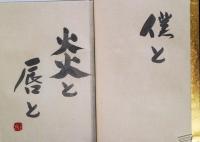 僕と
炎と
唇と